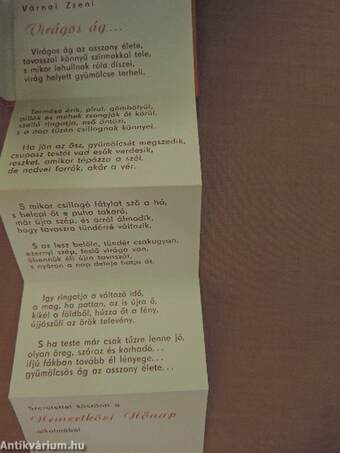 Várnai Zseni
Virágos ág...
Virágos ág az asszony élete,
tavasszal könnyű szirmokkal tele,
s mikor lehullnak róla díszei,
virág helyett gyümölcse terheli.
Termése érik, pirul, gömbölyül,
pillék és méhek zsongják őt körül,
szellő ringatja, eső öntözi,
s a nap tüzén csillognak könnyei.
Ha jön az ősz, gyümölcsét megszedik,
csupasz testét vad esők verdesik,
reszket, amikor tépázza a szél,
de nedvei forrók, akár a vér.
S mikor csillogó fátylat sző a hó,
s belepi őt e puha takaró,
már újra szép, és arról álmodik,
hogy tavaszra tündérré változik.
S az lesz belőle, tündér csakugyan,
ezernyi szép, feslő virága van,
önmaga éli újra tavaszát,
s nyáron a nap dala hatja át.
Így ringatja a változó idő,
a mag, ha pattan, az is újra ő,
kikél a földből, húzza őt a fény,
újjászüli az örök televény.
S ha teste már csak tűzre lenne jó,
olyan öreg, száraz és korhadó...
ifjú fákban tovább él lényege...
gyümölcsös ág az asszony élete...
Szeretettel köszönti a
Nemzetközi Nőnap
alkalmából
Antikvárium.hu